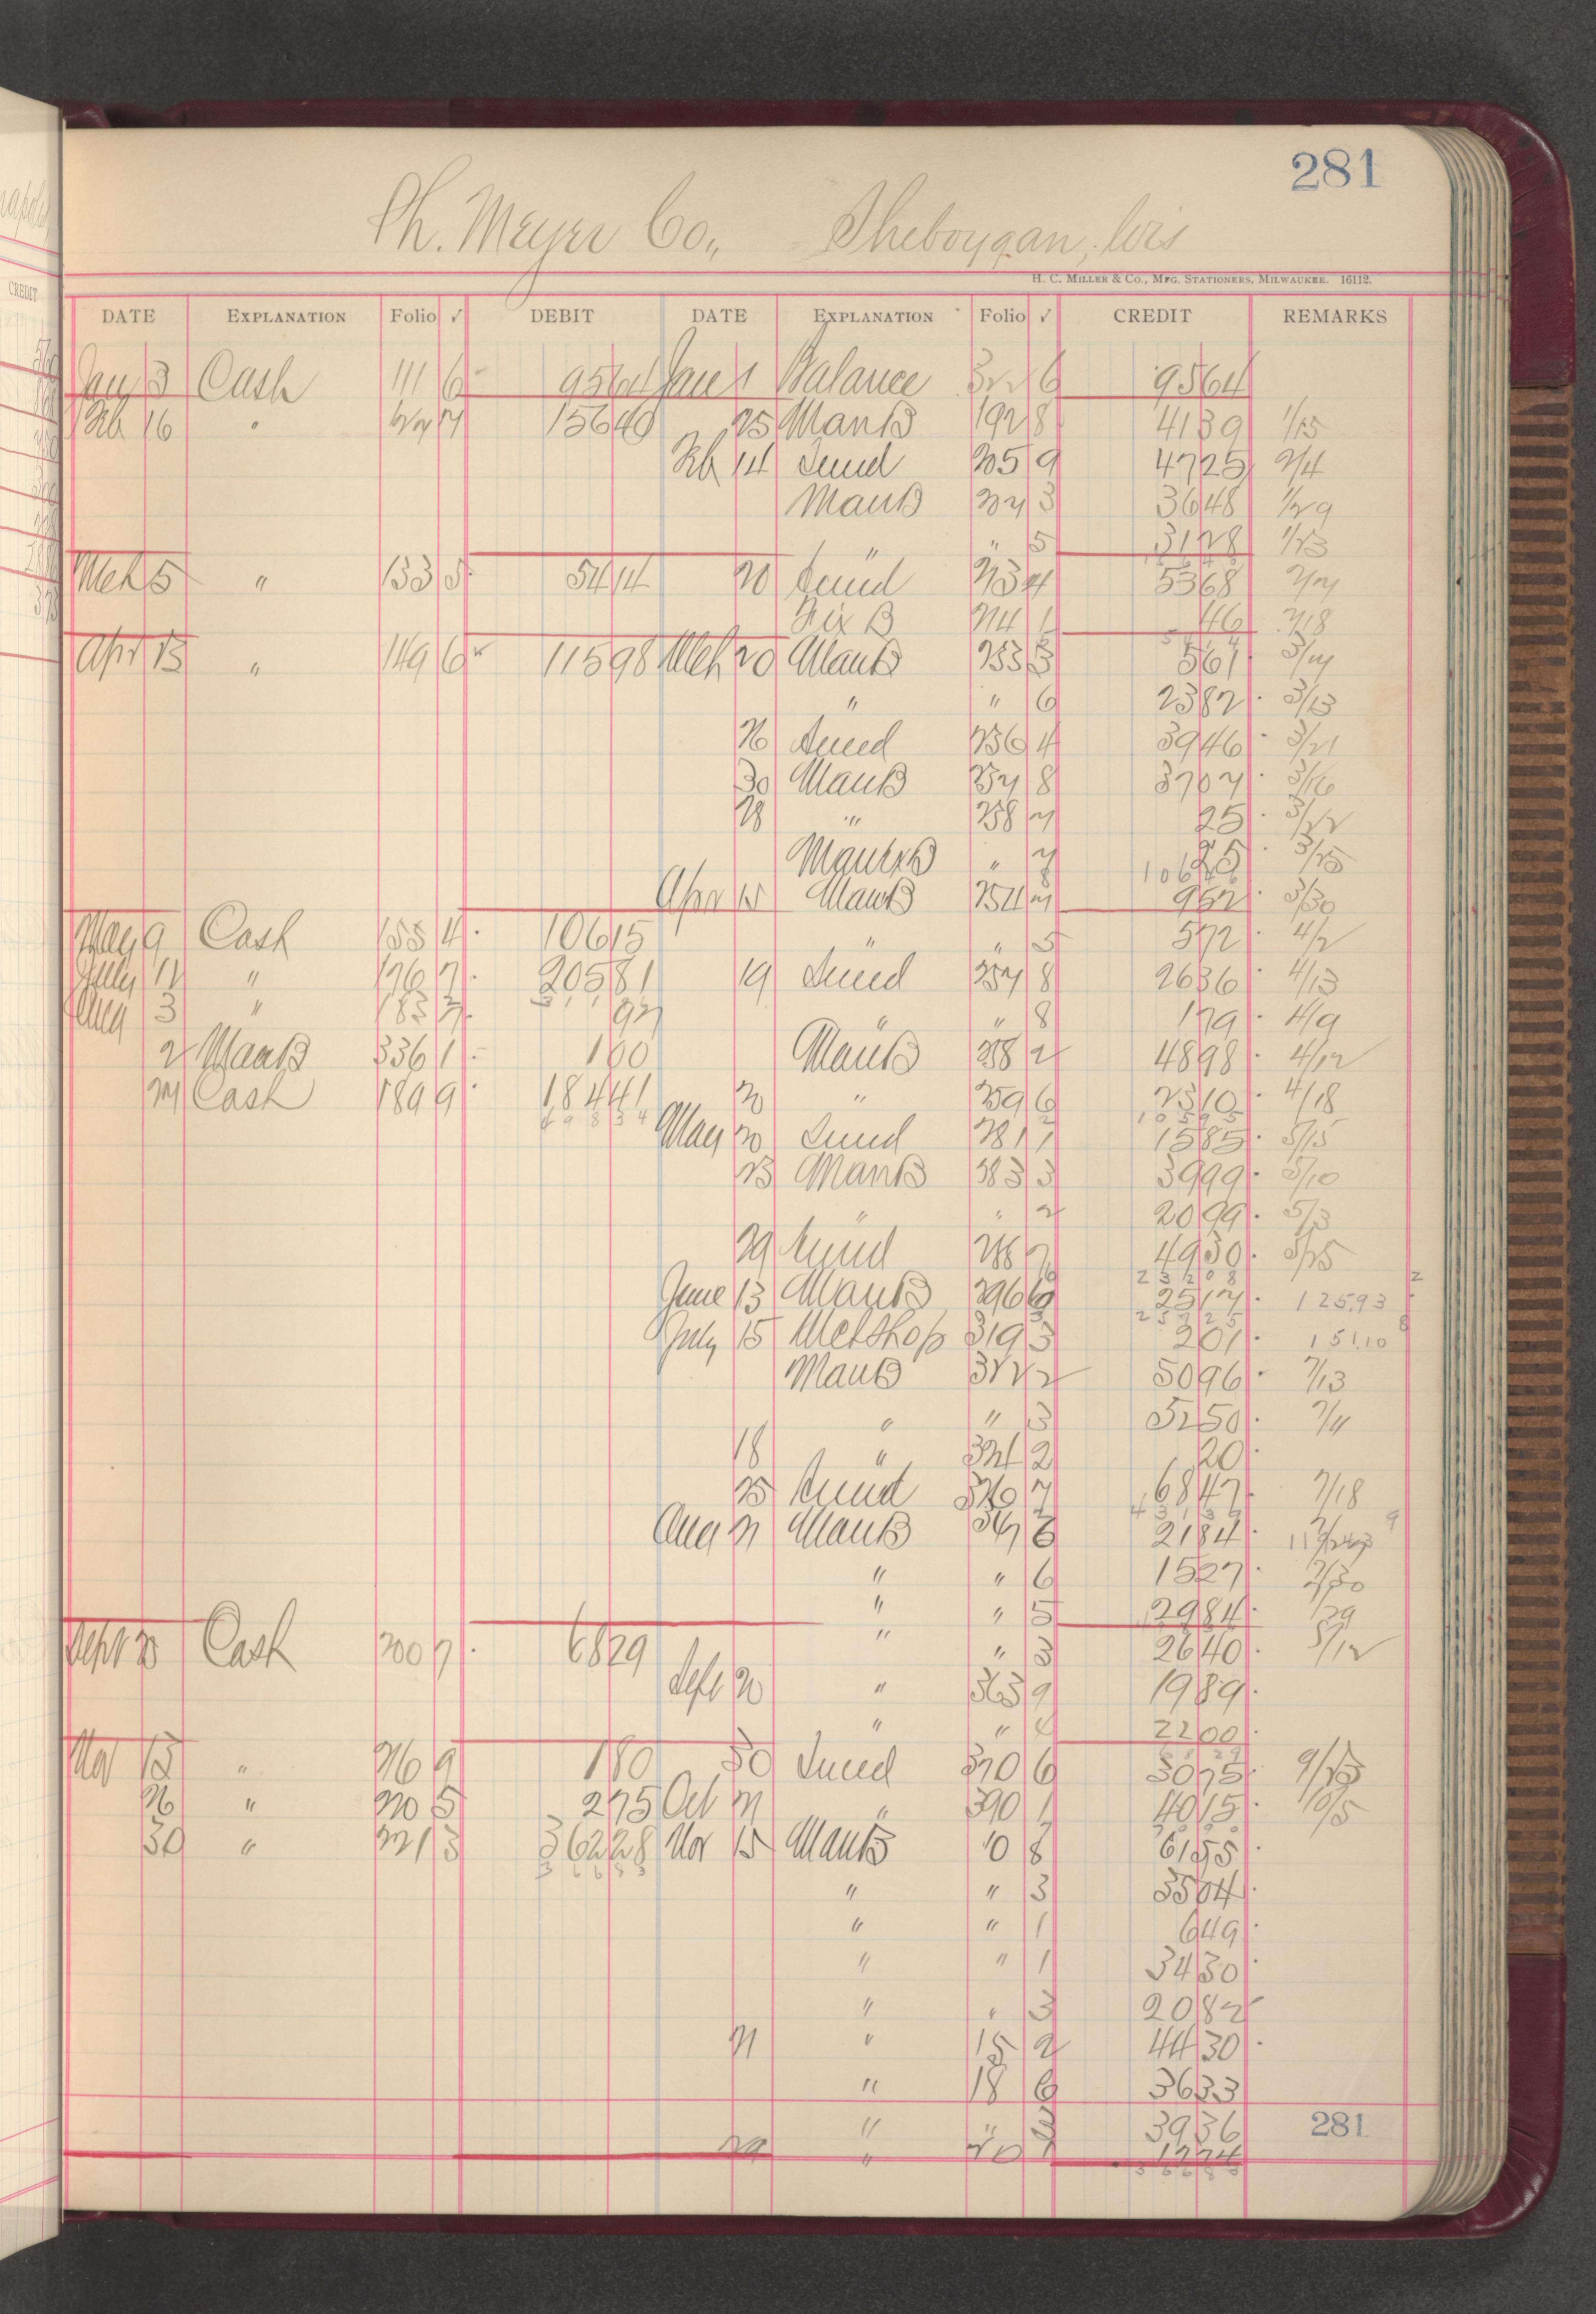 281
Ph. Meyer Co., Sheboygan, Wis
H. C. Miller & Co., Mfg. Stationers, Milwaukee. 16112.
CREDIT
DATE Explanation Folio ✓ DEBIT DATE Explanation Folio ✓ CREDIT REMARKS
Jan 3 Cash 111 6 9564 Jan 1 Balance 322 6 9564
Feb 16 " 127 7 15640 25 ManB 192 8 4139 1/15
Feb 14 Sund 205 9 4725 2/4
ManB 207 3 3648 1/29
" " 5 3128 1/23
Mch 5 " 133 5 5414 20 Sund 213 4 5368 2/7
Fix B 214 1 46 2/18
Apr 13 " 149 6 11598 Mch 20 ManB 233 3 561 3/7
" " 6 2382 3/13
26 Sund 236 4 3946 3/21
30 ManB 237 8 3707 3/16
28 " 238 7 25 3/22
" 7 25 3/25
10646
Apr 15 ManB 254 7 952 3/30
May 9 Cash 155 4 10615 " " 5 572 4/2
July 12 " 176 7 20581 19 Sund 257 8 2636 4/13
Aug 3 " 183 7 97 " " 8 179 4/9
2 ManB 336 1 100 ManB 258 2 4898 4/12
21 Cash 189 9 18441 20 " 259 6 2310 4/18
69834
May 20 Sund 281 1 1585 5/15
23 ManB 283 3 3999 5/10
" " 2 2099 5/3
29 Sund 288 7 4930 5/25
23208
June 13 ManB 296 6 2517 125.93
25725
July 15 Metshop 319 3 201 151.10
ManB 322 2 5096 7/13
" " 3 5250 7/11
18 " 324 2 20
25 Sund 326 7 6847 7/18
Aug 21 ManB 347 6 2184
" " 6 1527 7/30
" " 5 2984 7/29
Sept 20 Cash 200 7 6829 " " 3 2640 8/12
Sept 20 " 363 9 1989
" " 4 2200
6829
Nov 13 " 216 9 180 30 Sund 370 6 3075 9/23
26 " 220 5 275 Oct 21 " 390 1 4015 10/5
30 " 221 3 36228 Nov 15 ManB 10 8 6155
36683
" " 3 3504
" " 1 649
" " 1 3430
" " 3 2082
21 " 15 2 4430
" 18 6 3633
" " 3 3936
281
29 " 20 1 1774
36683